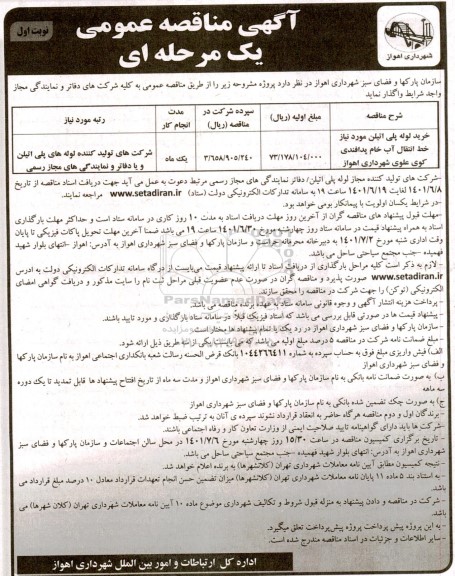 آگهی مناقصه عمومی
یک مرحله ای
نوبت اول
شهرداری اهواز
سازمان پارکها و فضای سبز شهرداری اهواز در نظر دارد پروژه مشروحه زیر را از طریق مناقصه عمومی به کلیه شرکت های دفاتر و نمایندگی مجاز
واجد شرایط واگذار نماید
شرح مناقصه
مبلغ اولیه (ریال)
سپرده شرکت در مناقصه (ریال)
مدت انجام کار
رتبه مورد نیاز
خرید لوله پلی اتیلن مورد نیاز
خط انتقال آب خام پدافندی
کوی علوی شهرداری اهواز
۷۳/۱۷۸/۱۰۴/۰۰۰
۳/۶۵۸/۹۰۵/۲۴۰
یک ماه
شرکت های تولید کننده لوله های پلی اتیلن
و یا دفاتر و نمایندگی های مجاز رسمی
-شرکت های تولید کننده مجاز لوله پلی اتیلن/ دفاتر نمایندگی های مجاز رسمی مرتبط دعوت به عمل می آید جهت دریافت اسناد مناقصه از تاریخ
۱۴۰۱/۶/۸ لغایت ۱۴۰۱/۶/۱۹ ساعت ۱۹ به سامانه تدارکات الکترونیکی دولت (ستاد) www.setadiran.ir مراجعه نمایند.
-در شرایط یکسان اولویت با پیمانکار بومی خواهد بود.
-مهلت قبول پیشنهاد های مناقصه گران از آخرین روز مهلت دریافت اسناد به مدت ۱۰ روز کاری در سامانه ستاد است و حداکثر مهلت بارگذاری
اسناد به همراه پیشنهاد قیمت در سامانه ستاد روز چهارشنبه مورخ ۱۴۰۱/۶/۳۰ ساعت ۱۹ می باشد ضمنا آخرین مهلت تحویل پاکات فیزیکی تا پایان
وقت اداری شنبه مورخ ۱۴۰۱/۷/۲ به دبیرخانه محرمانه حراست و سازمان پارکها و فضای سبز شهرداری اهواز به آدرس: اهواز -انتهای بلوار شهید
فهمیده -جنب مجتمع سیاحتی ساحل می باشد.
- لازم به ذکر است کلیه مراحل بارگذاری از دریافت اسناد تا ارائه پیشنهاد قیمت می‌بایست از درگاه سامانه تدارکات الکترونیکی دولت به آدرس
www.setadiran.ir صورت پذیرد و مناقصه گران در صورت عدم عضویت قبلی مراحل ثبت نام را سایت مذکور و دریافت گواهی امضای
الکترونیکی (توکن) را جهت شرکت در مناقصه را محقق سازند.
- پرداخت هزینه انتشار آگهی و وجوه قانونی سامانه ستاد به عهده برنده مناقصه می باشد.
- پیشنهاد قیمت ها در صورتی قابل بررسی می باشد که اسناد فیزیک قبلاً در سامانه ستاد بارگذاری و مورد تایید باشند.
- سازمان پارکها و فضای سبز شهرداری اهواز در رد یک یا تمام پیشنهاد ها مختار است.
- مبلغ ضمانت نامه شرکت در مناقصه ۵ درصد مبلغ اولیه می باشد که می بایست یکی از سه طریق ذیل ارائه شود.
الف) فیش واریزی مبلغ فوق به حساب سپرده به شماره ۱۰۴۴۲۶۶۴۱۱ بانک قرض الحسنه رسالت شعبه بانکداری اجتماعی اهواز به نام سازمان پارکها
و فضای سبز شهرداری اهواز
ب) به صورت ضمانت نامه بانکی به نام سازمان پارکها و فضای سبز شهرداری اهواز و مدت سه ماه از تاریخ افتتاح پیشنهاد ها قابل تمدید تا یک دوره
سه ماهه
ج) به صورت چک تضمین شده بانکی به نام سازمان پارکها و فضای سبز شهرداری اهواز
- برندگان اول و دوم مناقصه هرگاه حاضر به انعقاد قرارداد نشوند سپرده ی آنان به ترتیب ضبط خواهد شد.
-شرکت ها باید دارای گواهینامه تایید صلاحیت ایمنی از وزارت تعاون کار و رفاه اجتماعی باشند.
- تاریخ برگزاری کمیسیون مناقصه در ساعت ۱۵/۳۰ روز چهارشنبه مورخ ۱۴۰۱/۷/۶ در محل سالن اجتماعات و سازمان پارکها و فضای سبز
شهرداری اهواز به آدرس: انتهای بلوار شهید فهمیده -جنب مجتمع سیاحتی ساحل می باشد.
- نتیجه کمیسیون مطابق آیین نامه معاملات شهرداری تهران (کلانشهرها) به برنده اعلام خواهد شد.
- به استناد بند ۵ ماده ۱۱ پایان نامه معاملات شهرداری تهران (کلانشهرها) میزان تضمین حسن انجام تعهدات قرارداد معادل ۱۰ درصد مبلغ قرارداد می
باشد.
- شرکت در مناقصه و دادن پیشنهاد به منزله قبول شروط و تکالیف شهرداری موضوع ماده ۱۰ آیین نامه معاملات شهرداری تهران (کلان شهرها) می
باشد.
- به این پروژه پیش پرداخت پروژه پیش‌پرداخت تعلق میگیرد.
- سایر اطلاعات و جزئیات در اسناد مناقصه مندرج شده است.
اداره کل ارتباطات و امور بین الملل شهرداری اهواز